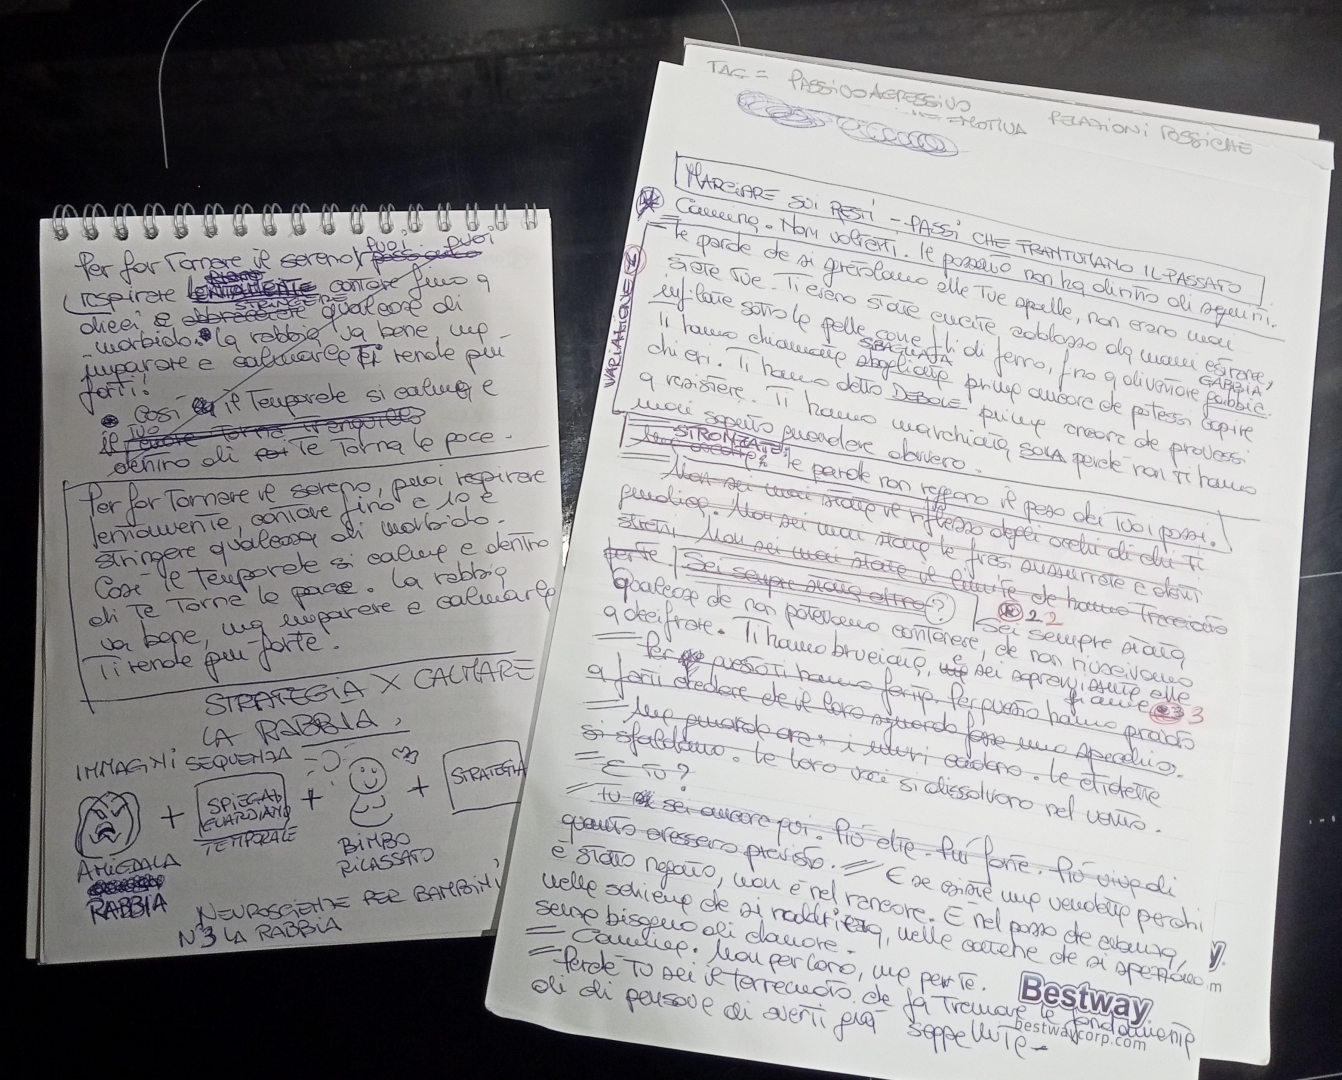 Per far tornare il sereno, puoi
respirare contare fino a
dieci e stringere qualcosa di
morbido. La rabbia va bene ma
imparare e calmarla ti rende più
forti!
Così il temporale si calma e
dentro di te torna la pace.
Per far tornare il sereno, puoi respirare
lentamente, contare fino a 10 e
stringere qualcosa di morbido.
Così le temporale si calma e dentro
di te torna la pace. La rabbia
va bene, ma imparare e calmarla
ti rende più forte.
STRATEGIA X CALMARE
LA RABBIA,
IMMAGINI SEQUENZA
+ SPIEGAZ GUARDIANO TEMPORALE + + STRATEGIA
AMIGDALA
RABBIA
BIMBO
RILASSATO
NEUROSCIENZE PER BAMBINI
N°3 LA RABBIA
TAG = PASSIVO AGRESSIVO
EMOTIVA RELAZIONI TOSSICHE
MARCIARE SUI RESTI - PASSI CHE FRANTUMANO IL PASSATO
Cammina. Non voltarti. Il passato non ha diritto di seguirti.
VARIAZIONE
Le parole che si sgretolano alle tue spalle, non erano mai
state tue. Ti erano state cucite addosso da mani estranee,
infilate sotto la pelle come fili di ferro, fino a diventare GABBIA.
Ti hanno chiamata SBAGLIATA prima ancora che potessi capire
chi eri. Ti hanno detto DEBOLE prima ancora che provassi
a resistere. Ti hanno marchiata SOLA perché non ti hanno
mai saputo guardare davvero.
STRONZATE:
le parole non reggono il peso dei tuoi passi.
Non sei mai stata il riflesso degli occhi di chi ti
giudica. Non sei mai stata le frasi sussurrate a denti
stretti. Non sei mai stata il limite che hanno tracciato
per te. Sei sempre stata oltre ?
22 Sei sempre stata
qualcosa che non potevano contenere, che non riuscivano
a decifrare. Ti hanno bruciata, e sei sopravvissuta alle
fiamme 33
Per questo ti hanno ferita. Per questo hanno provato
a farti credere che il loro sguardo fosse uno specchio.
Ma guarda ora: i muri cadono. Le etichette
si sfaldano. Le loro voci si dissolvono nel vento.
E tu?
Tu sei ancora qui. Più alta. Più forte. Più viva di
quanto avessero previsto. E se esiste una vendetta perché
è stato negato, non è nel rancore. È nel passo che avanza,
nella schiena che si raddrizza, nelle catene che si spezzano
senza bisogno di clamore.
Cammina. Non per loro, ma per te.
Perché tu sei il terremoto che fa tremare le fondamenta
di chi pensava di averti già seppellita.
Bestway
bestwaycorp.com